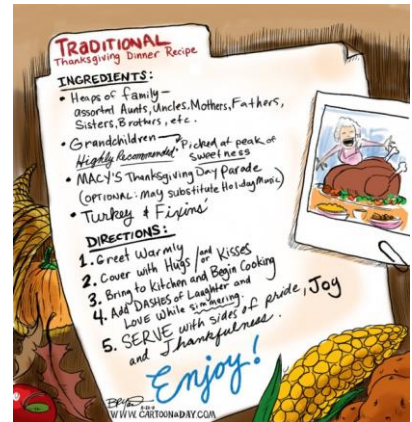 TRADITIONAL
Thanksgiving Dinner Recipe
INGREDIENTS:
• Heaps of family—
assorted Aunts, Uncles, Mothers, Fathers,
Sisters, Brothers, etc.
• Grandchildren → Picked at peak of
Highly Recommended! sweetness
• MACY'S Thanksgiving Day Parade
(OPTIONAL: may substitute Holiday Music)
• Turkey & Fixins'
DIRECTIONS:
1. Greet Warmly
2. Cover with Hugs and/or Kisses
3. Bring to Kitchen and Begin Cooking
4. Add DASHES of Laughter and
LOVE while simmering.
5. SERVE with sides of pride, Joy
and Thankfulness.
Enjoy!
WWW.CARTOONADAY.COM